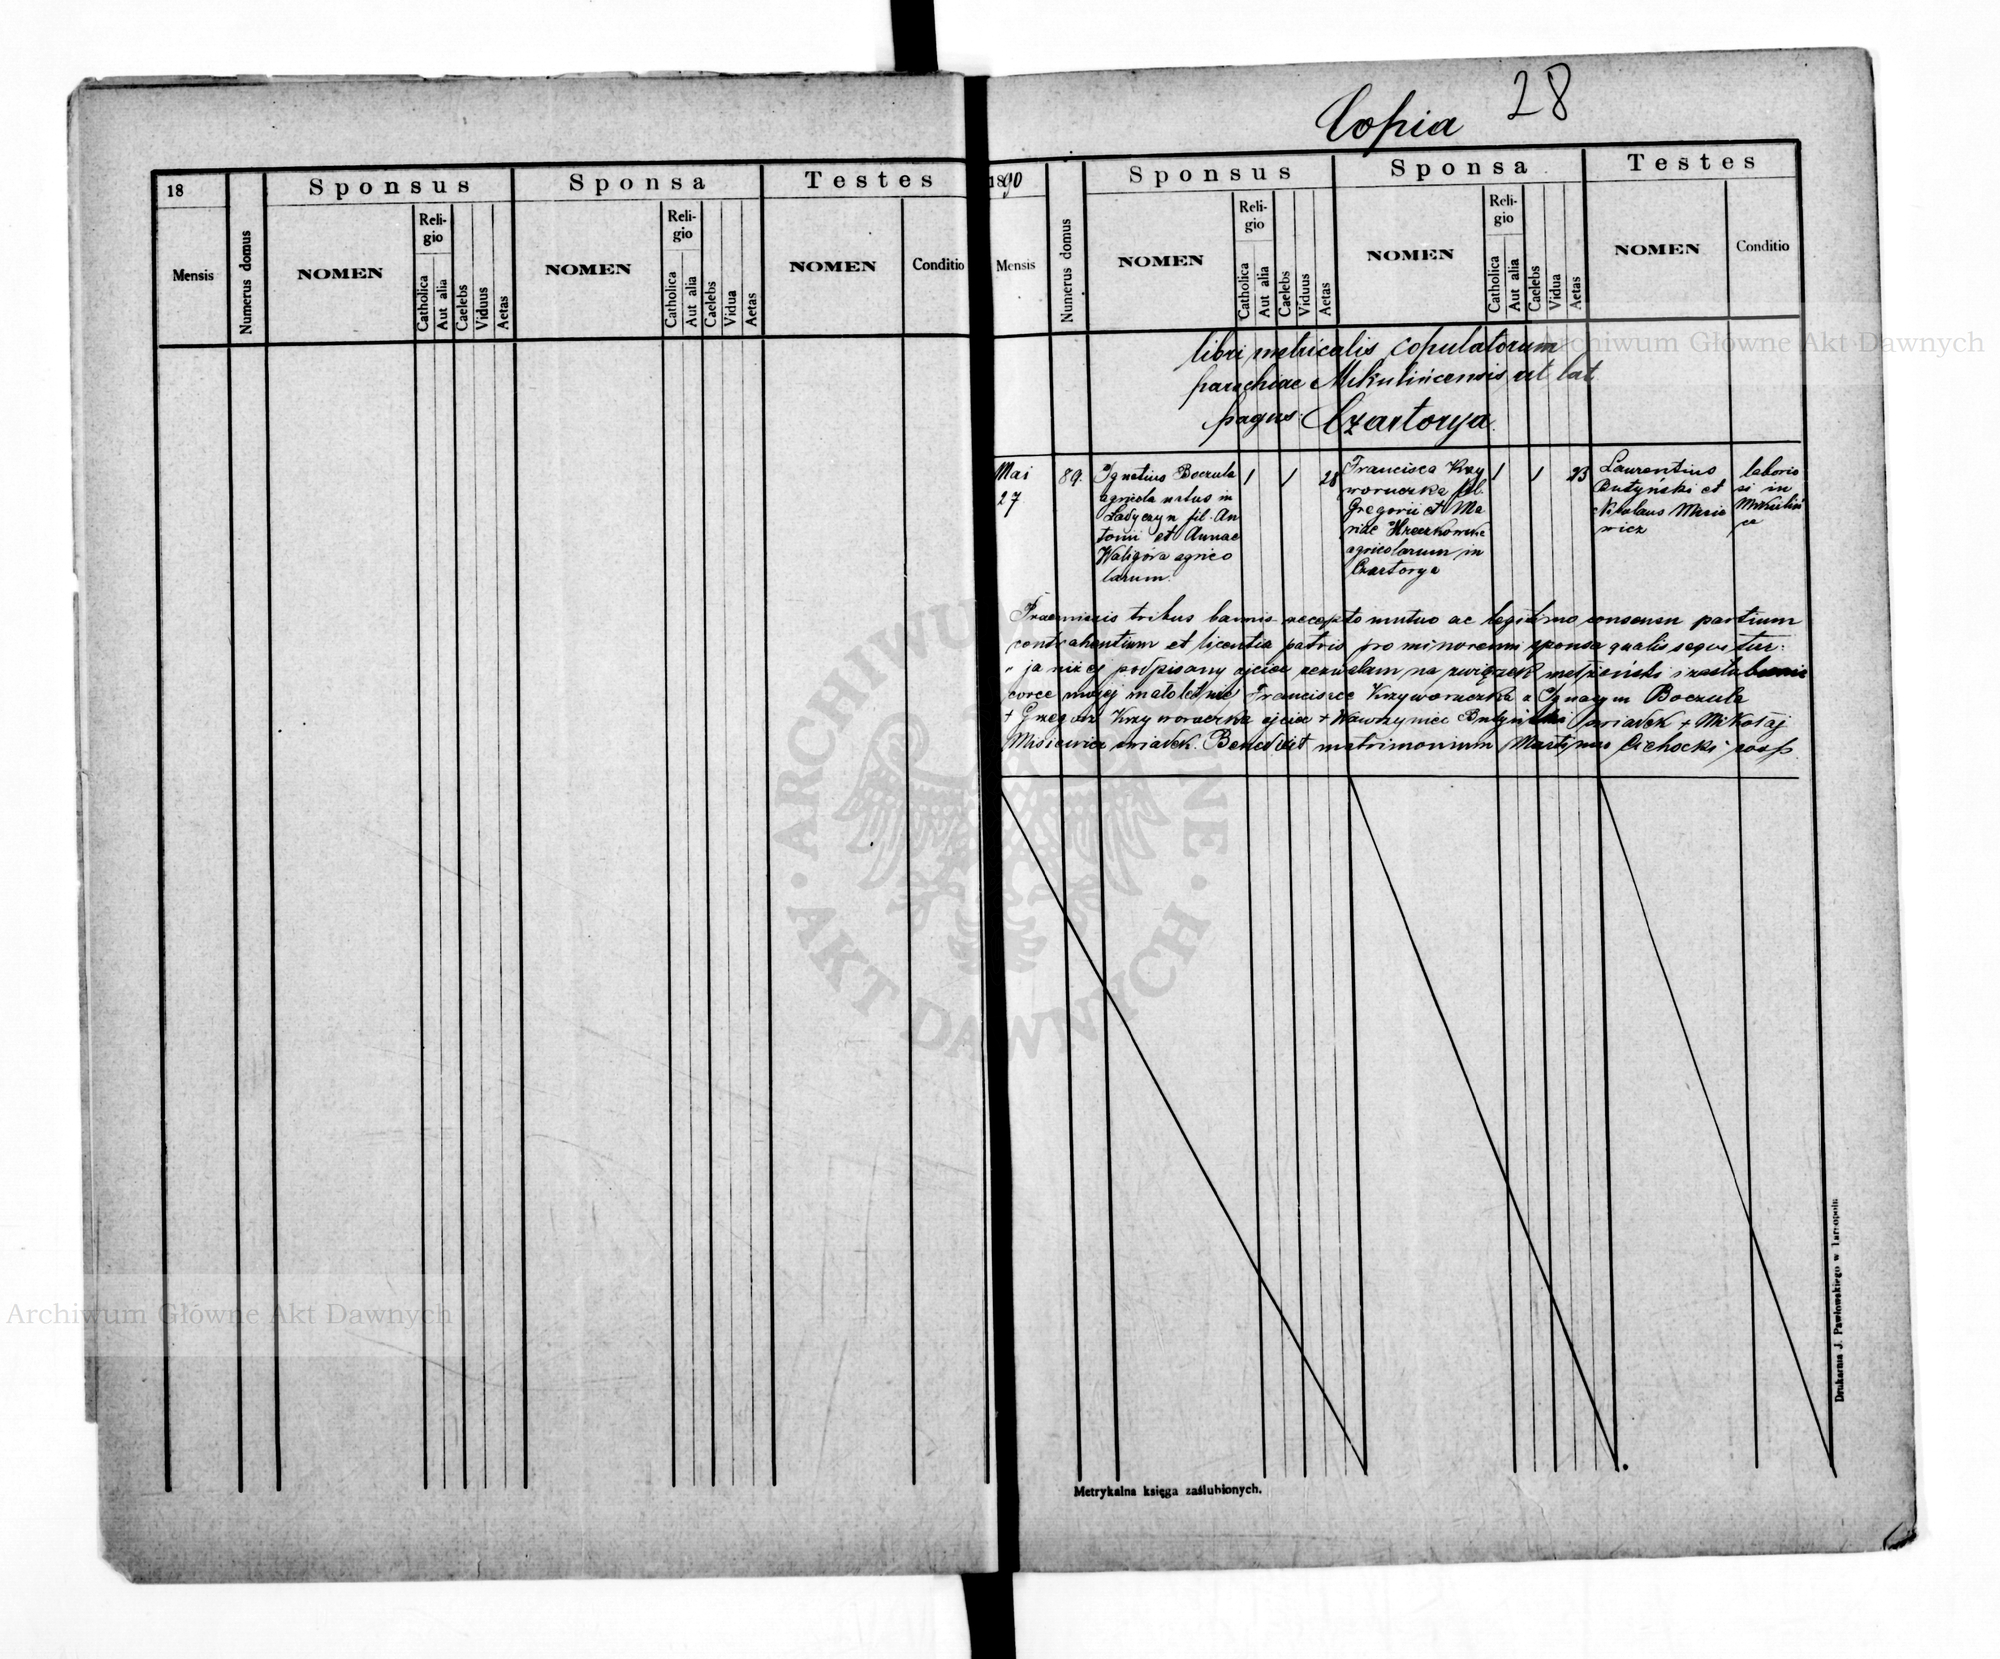 Copia 28
18
Mensis
Numerus domus
Sponsus
NOMEN
Religio
Catholica
Aut alia
Caelebs
Viduus
Aetas
Sponsa
NOMEN
Religio
Catholica
Aut alia
Caelebs
Vidua
Aetas
Testes
NOMEN
Conditio
1890
Mensis
Numerus domus
Sponsus
NOMEN
Reli-
gio
Catholica
Aut alia
Caelebs
Viduus
Aetas
Sponsa
NOMEN
Reli-
gio
Catholica
Aut alia
Caelebs
Vidua
Aetas
Testes
NOMEN
Conditio
libri metricalis copulatorum
parochiae Mikulińcensis rit lat
pagus: Czartorya.
Mai
27
89.
Ignatius Boczula
agricola natus in
Ładyczyn fil. An
tonii et Annae
Waligóra agrico
larum.
1
1
28
Francisca Krzy
woruczka fil.
Gregorii et Ma
riae
agricolarum in
Czartorya
1
1
23
Laurentius
Butyński et
Nikolaus Misie
wicz
laborio
si in
Mikuliń
ce
Praemissis tribus bannis recepto mutuo ac legitimo consensu partium
contrahentium et licentia patris pro minorenni sponsa qualis sequitur:
" ja niżej podpisany ojciec zezwalam na związek małżeński i zaślubienie
corce mojej małoletniej Franciszce Krzyworuczka z Ignacym Boczula
+ Grzegorz Krzyworuczka ojciec + Wawrzyniec Butyński świadek + Mikołaj
Misiewicz świadek. Benedixit matrimonium Martinus Cichocki coop.
Metrykalna księga zaślubionych.
Drukarnia J. Pawłowskiego w Tarnopolu
Archiwum Główne Akt Dawnych
Archiwum Główne Akt Dawnych
ARCHIWUM GŁÓWNE AKT DAWNYCH